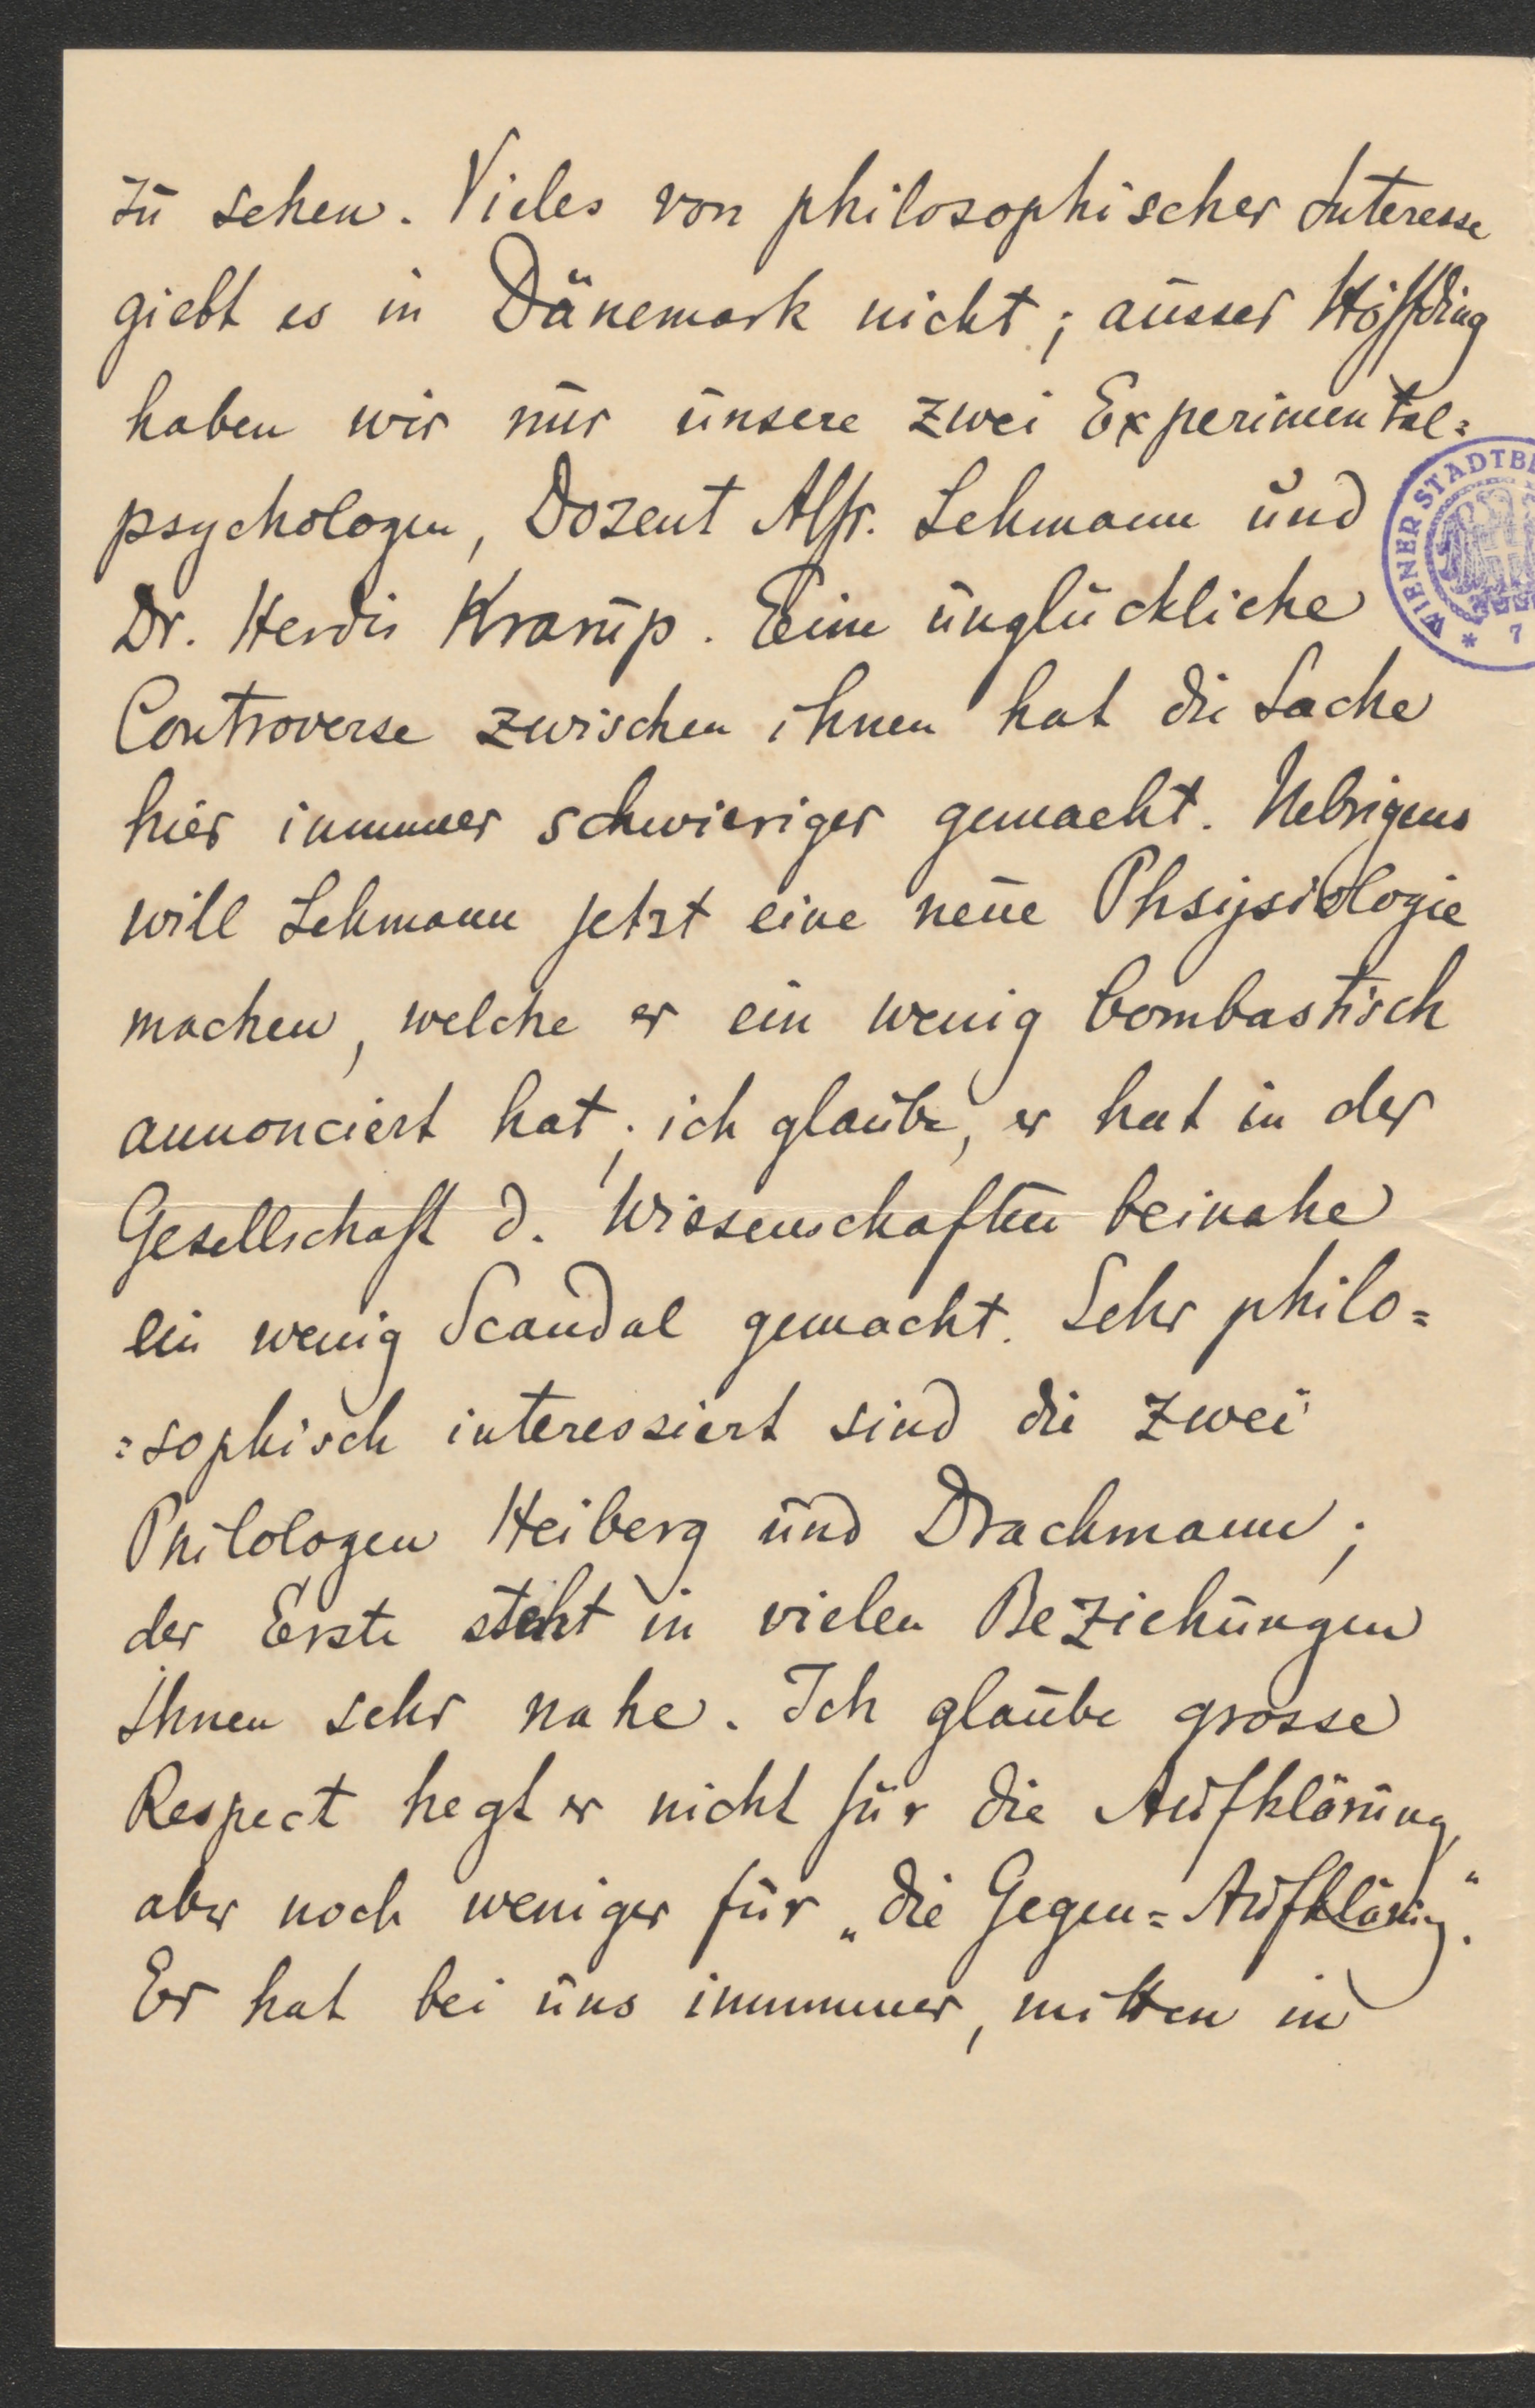 zu sehen. Vieles von philosophischer Interesse
giebt es in Dänemark nicht; ausser Höffding
haben wir nur unsere zwei Experimental=
psychologen, Dozent Alfr. Lehmann und
Dr. Herdis Krarup. Eine unglückliche
Controverse zwischen ihnen hat die Sache
hier immer schwieriger gemacht. Uebrigens
will Lehmann jetzt eine neue Phsysiologie
machen, welche er ein wenig bombastisch
annonciert hat; ich glaube, er hat in der
Gesellschaft d. Wissenschaften beinahe
ein wenig Scandal gemacht. Sehr philo=
=sophisch interessiert sind die zwei
Philologen Heiberg und Drachmann;
der Erste steht in vielen Beziehungen
Ihnen sehr nahe. Ich glaube grosse
Respect hegt er nicht für die Aufklärung,
aber noch weniger für „die Gegen=Aufklärung."
Er hat bei uns immer, mitten in
WIENER STADTB
* 7